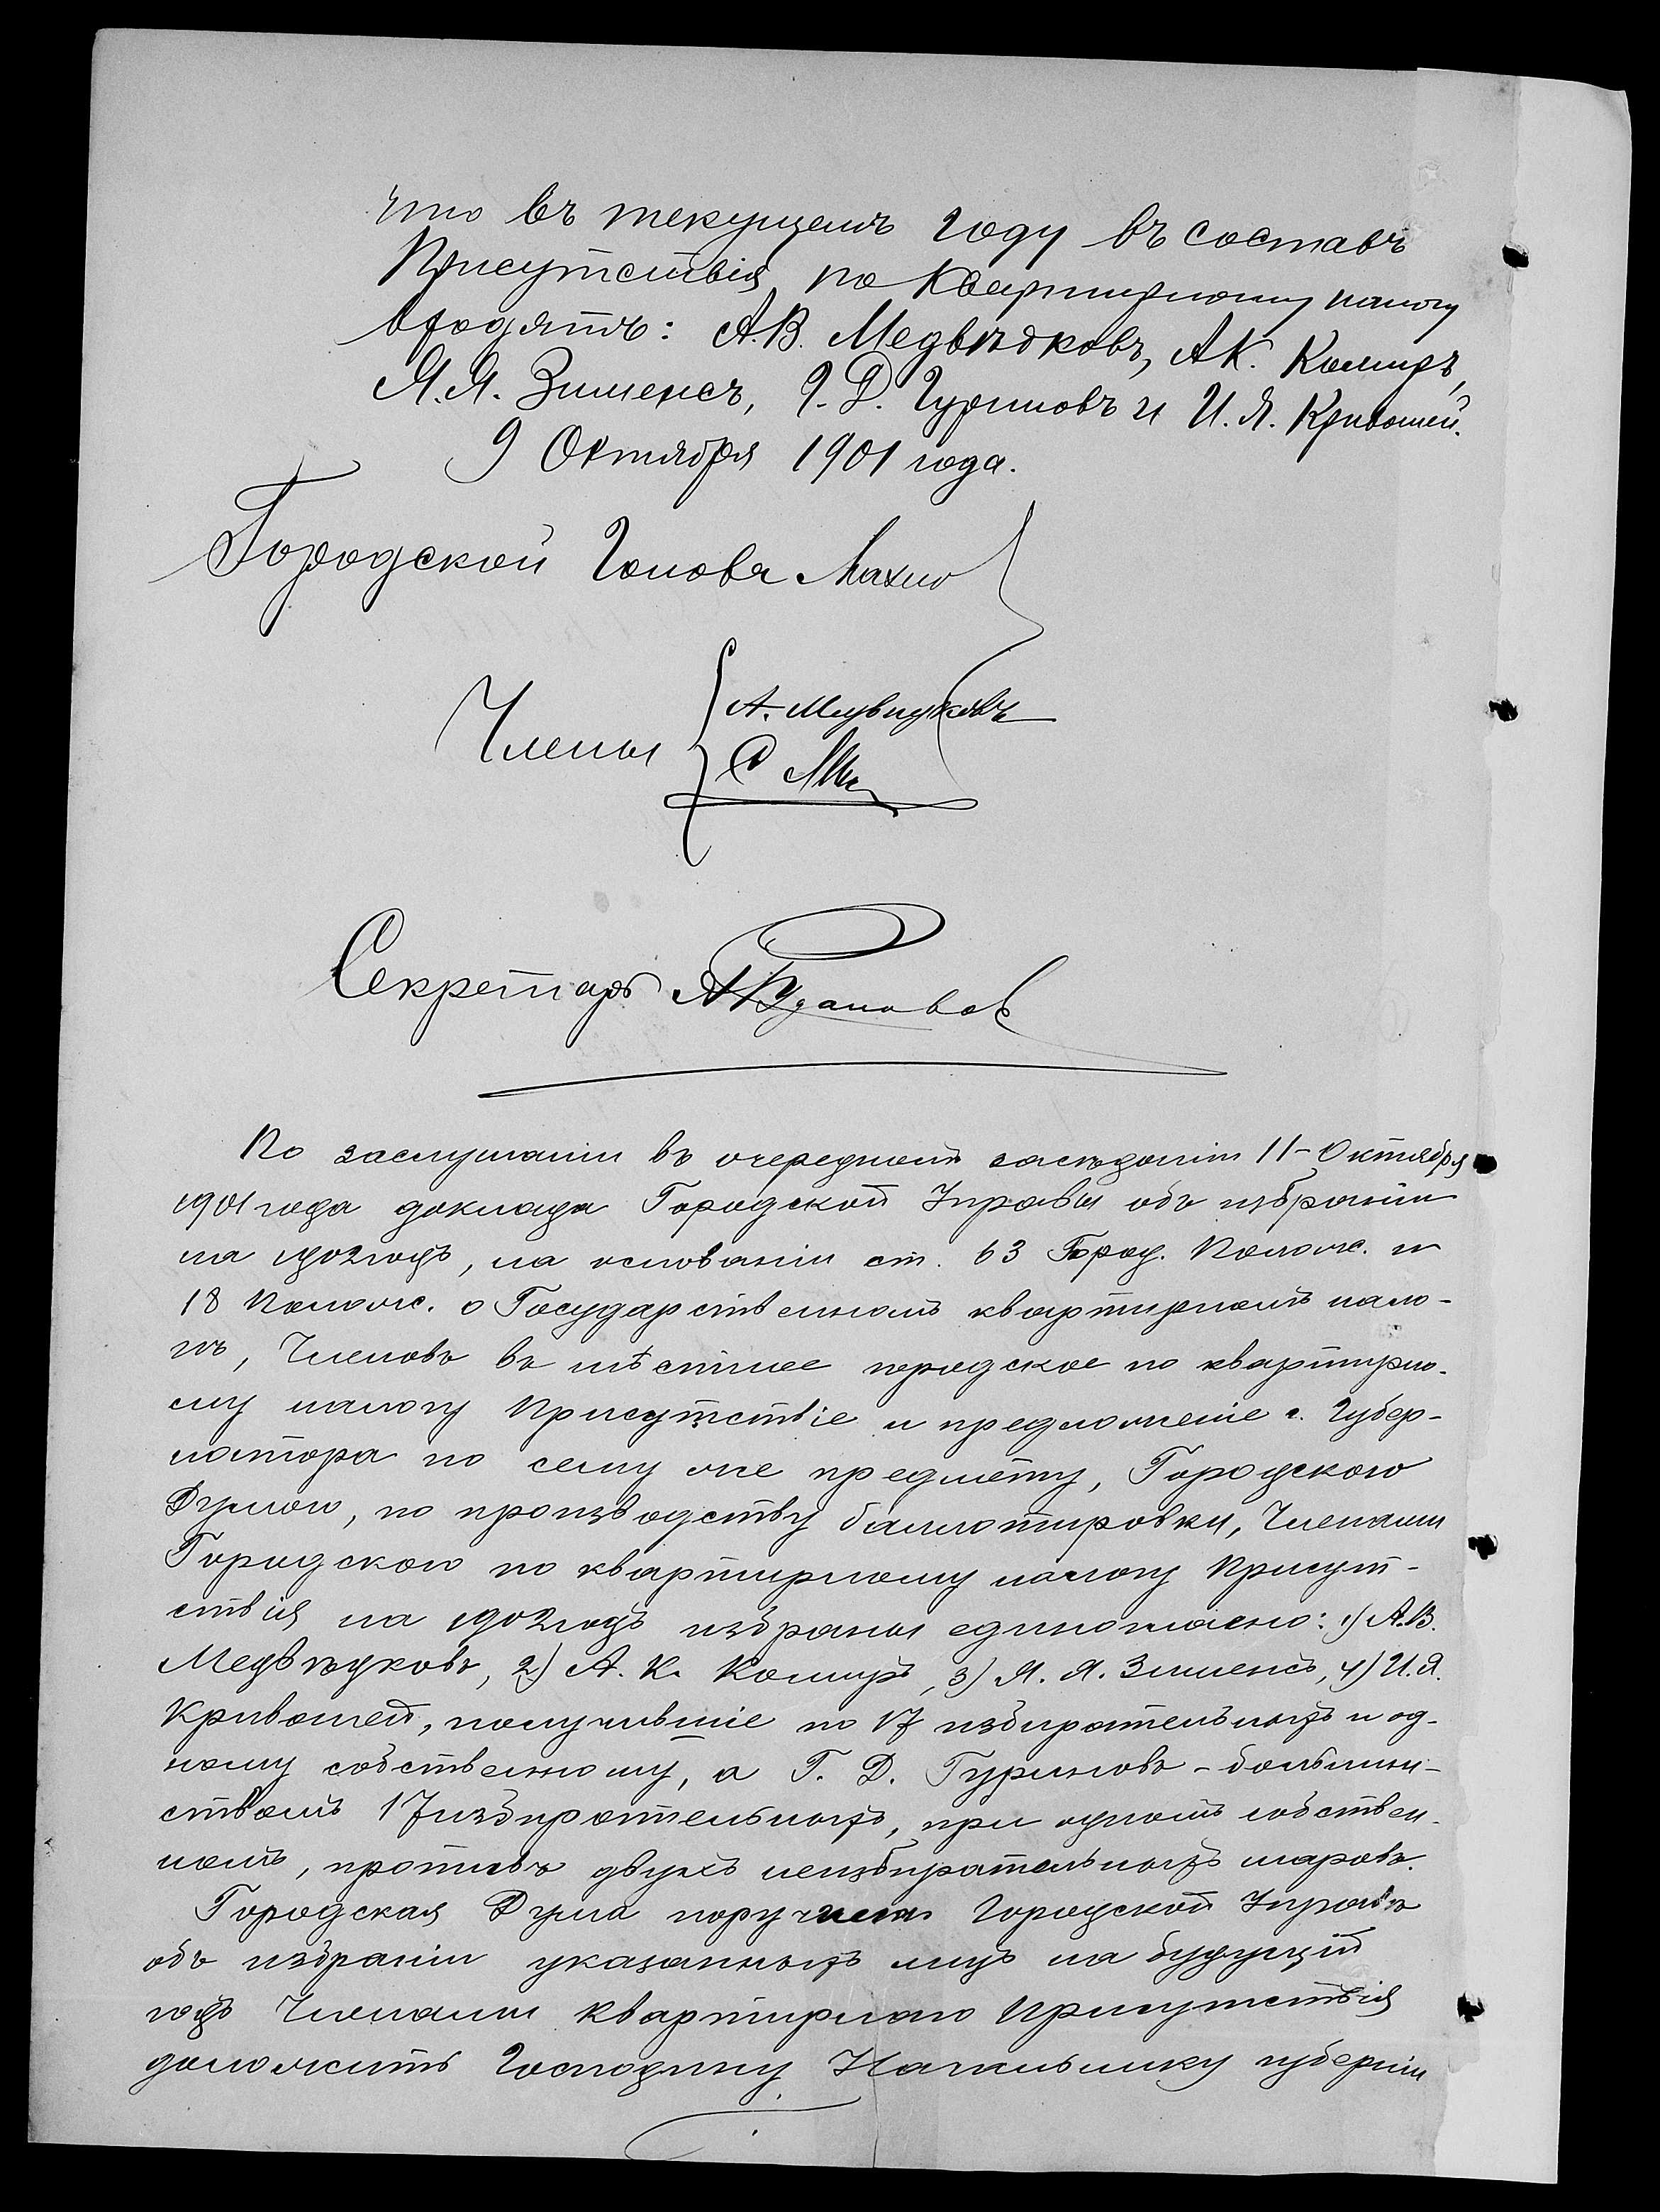 что въ текущемъ году въ составъ
Присутствія по Квартирному налогу
входятъ: А.В. Медвѣдковъ, А.К. Комиръ,
Я.Я. Зименсъ, Г.Д. Гуриновъ и И.Я. Кривошей.
9 Октября 1901 года.
Городской Голова Махно
Члены А. Медвѣдковъ
Секретарь
По заслушаніи въ очередномъ засѣданіи 11-Октября
1901 года доклада Городской Управы объ избраніи
на 1902 годъ, на основаніи ст. 63 Город. Полож. и
18 Полож. о Государственномъ квартирномъ нало-
гѣ, Членовъ въ мѣстное городское по квартирно-
му налогу Присутствіе и предложеніе г. Губер-
натора по сему же предмету, Городскою
Думою, по производству баллотировки, Членами
Городского по квартирному налогу Присут-
ствія на 1902 годъ избраны единогласно: 1) А.В.
Медвѣдковъ, 2) А. К. Комиръ, 3) Я. Я. Зименсъ, 4) И.Я.
Кривошей, получившіе по 17 избирательныхъ и од-
ному собственному, а Г. Д. Гуриновъ - большин-
ствомъ 17 избирательныхъ, при одномъ собствен-
номъ, противъ двухъ неизбирательныхъ шаровъ.
Городская Дума поручаетъ Городской Управѣ
объ избраніи указанныхъ лицъ на будущій
годъ Членами Квартирнаго Присутствія
доложить Господину Начальнику губерніи